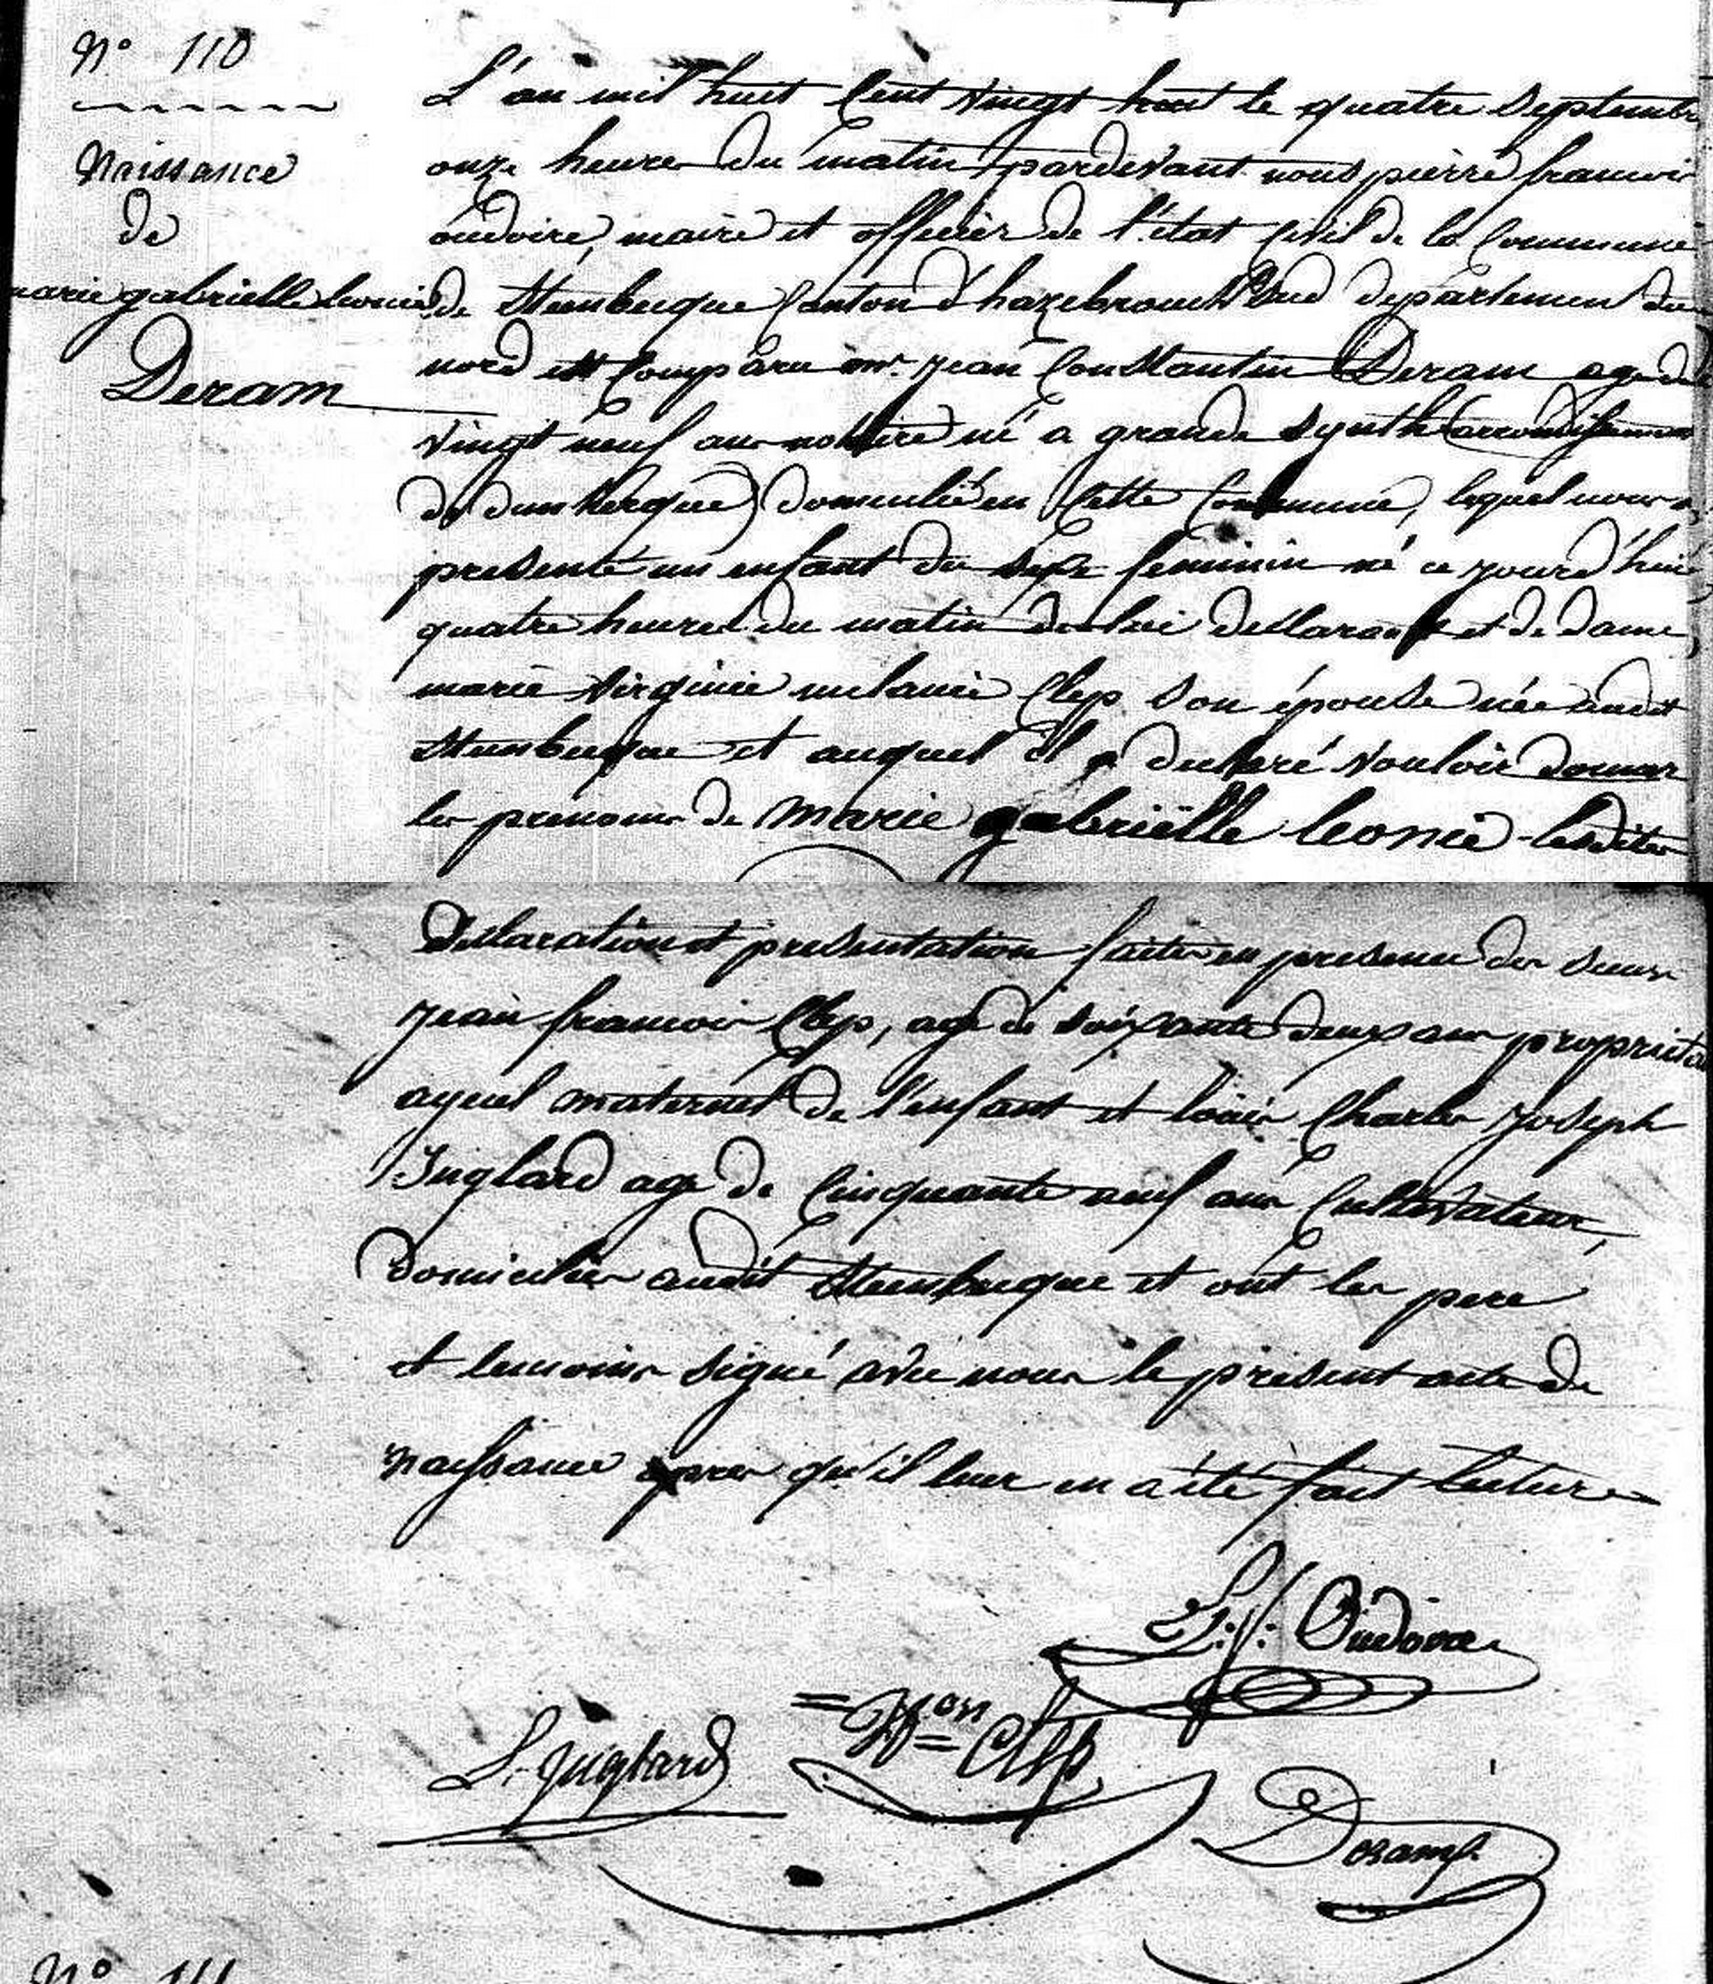 N° 110
Naissance
de
marie gabrielle leonie
Deram
L'an mil huit Cent vingt huit le quatre Septembre
onze heures du matin pardevant nous pierre francois
oudoire, maire et officier de l'état Civil de la Commune
de Steenbecque Canton d'hazebrouck Sud departement du
nord est Comparu mr. jean Constantin Deram agé de
vingt neuf ans notaire né a grande Synthe (arrondissement
de dunkerque) domicilié en Cette Commune, lequel nous a
presenté un enfant du sexe feminin né ce jourd'hui
quatre heures du matin de lui declarant et de dame
marie virginie melanie Clep son épouse née audit
Steenbecque et auquel il a declaré vouloir donner
les prenoms de marie gabriëlle leonie lesdites
Declaration et presentation faites en presence des sieurs
jean francois Clep, agé de soixante deux ans propriétai
ayeul maternel de l'enfant et louis Charles joseph
Inglard agé de Cinquante neuf ans Cultivateur,
domiciliés audit Steenbecque et ont les pere
et temoins signé avec nous le présent acte de
naissance apres qu'il leur en a été fait lecture
P. f. Oudoire
L. Inglard
Clep
Deram
N° 111